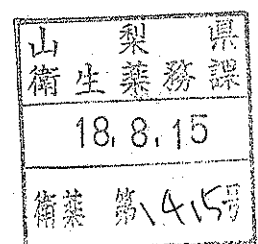 山梨県
衛生薬務課
18.8.15
衛薬 第1415号